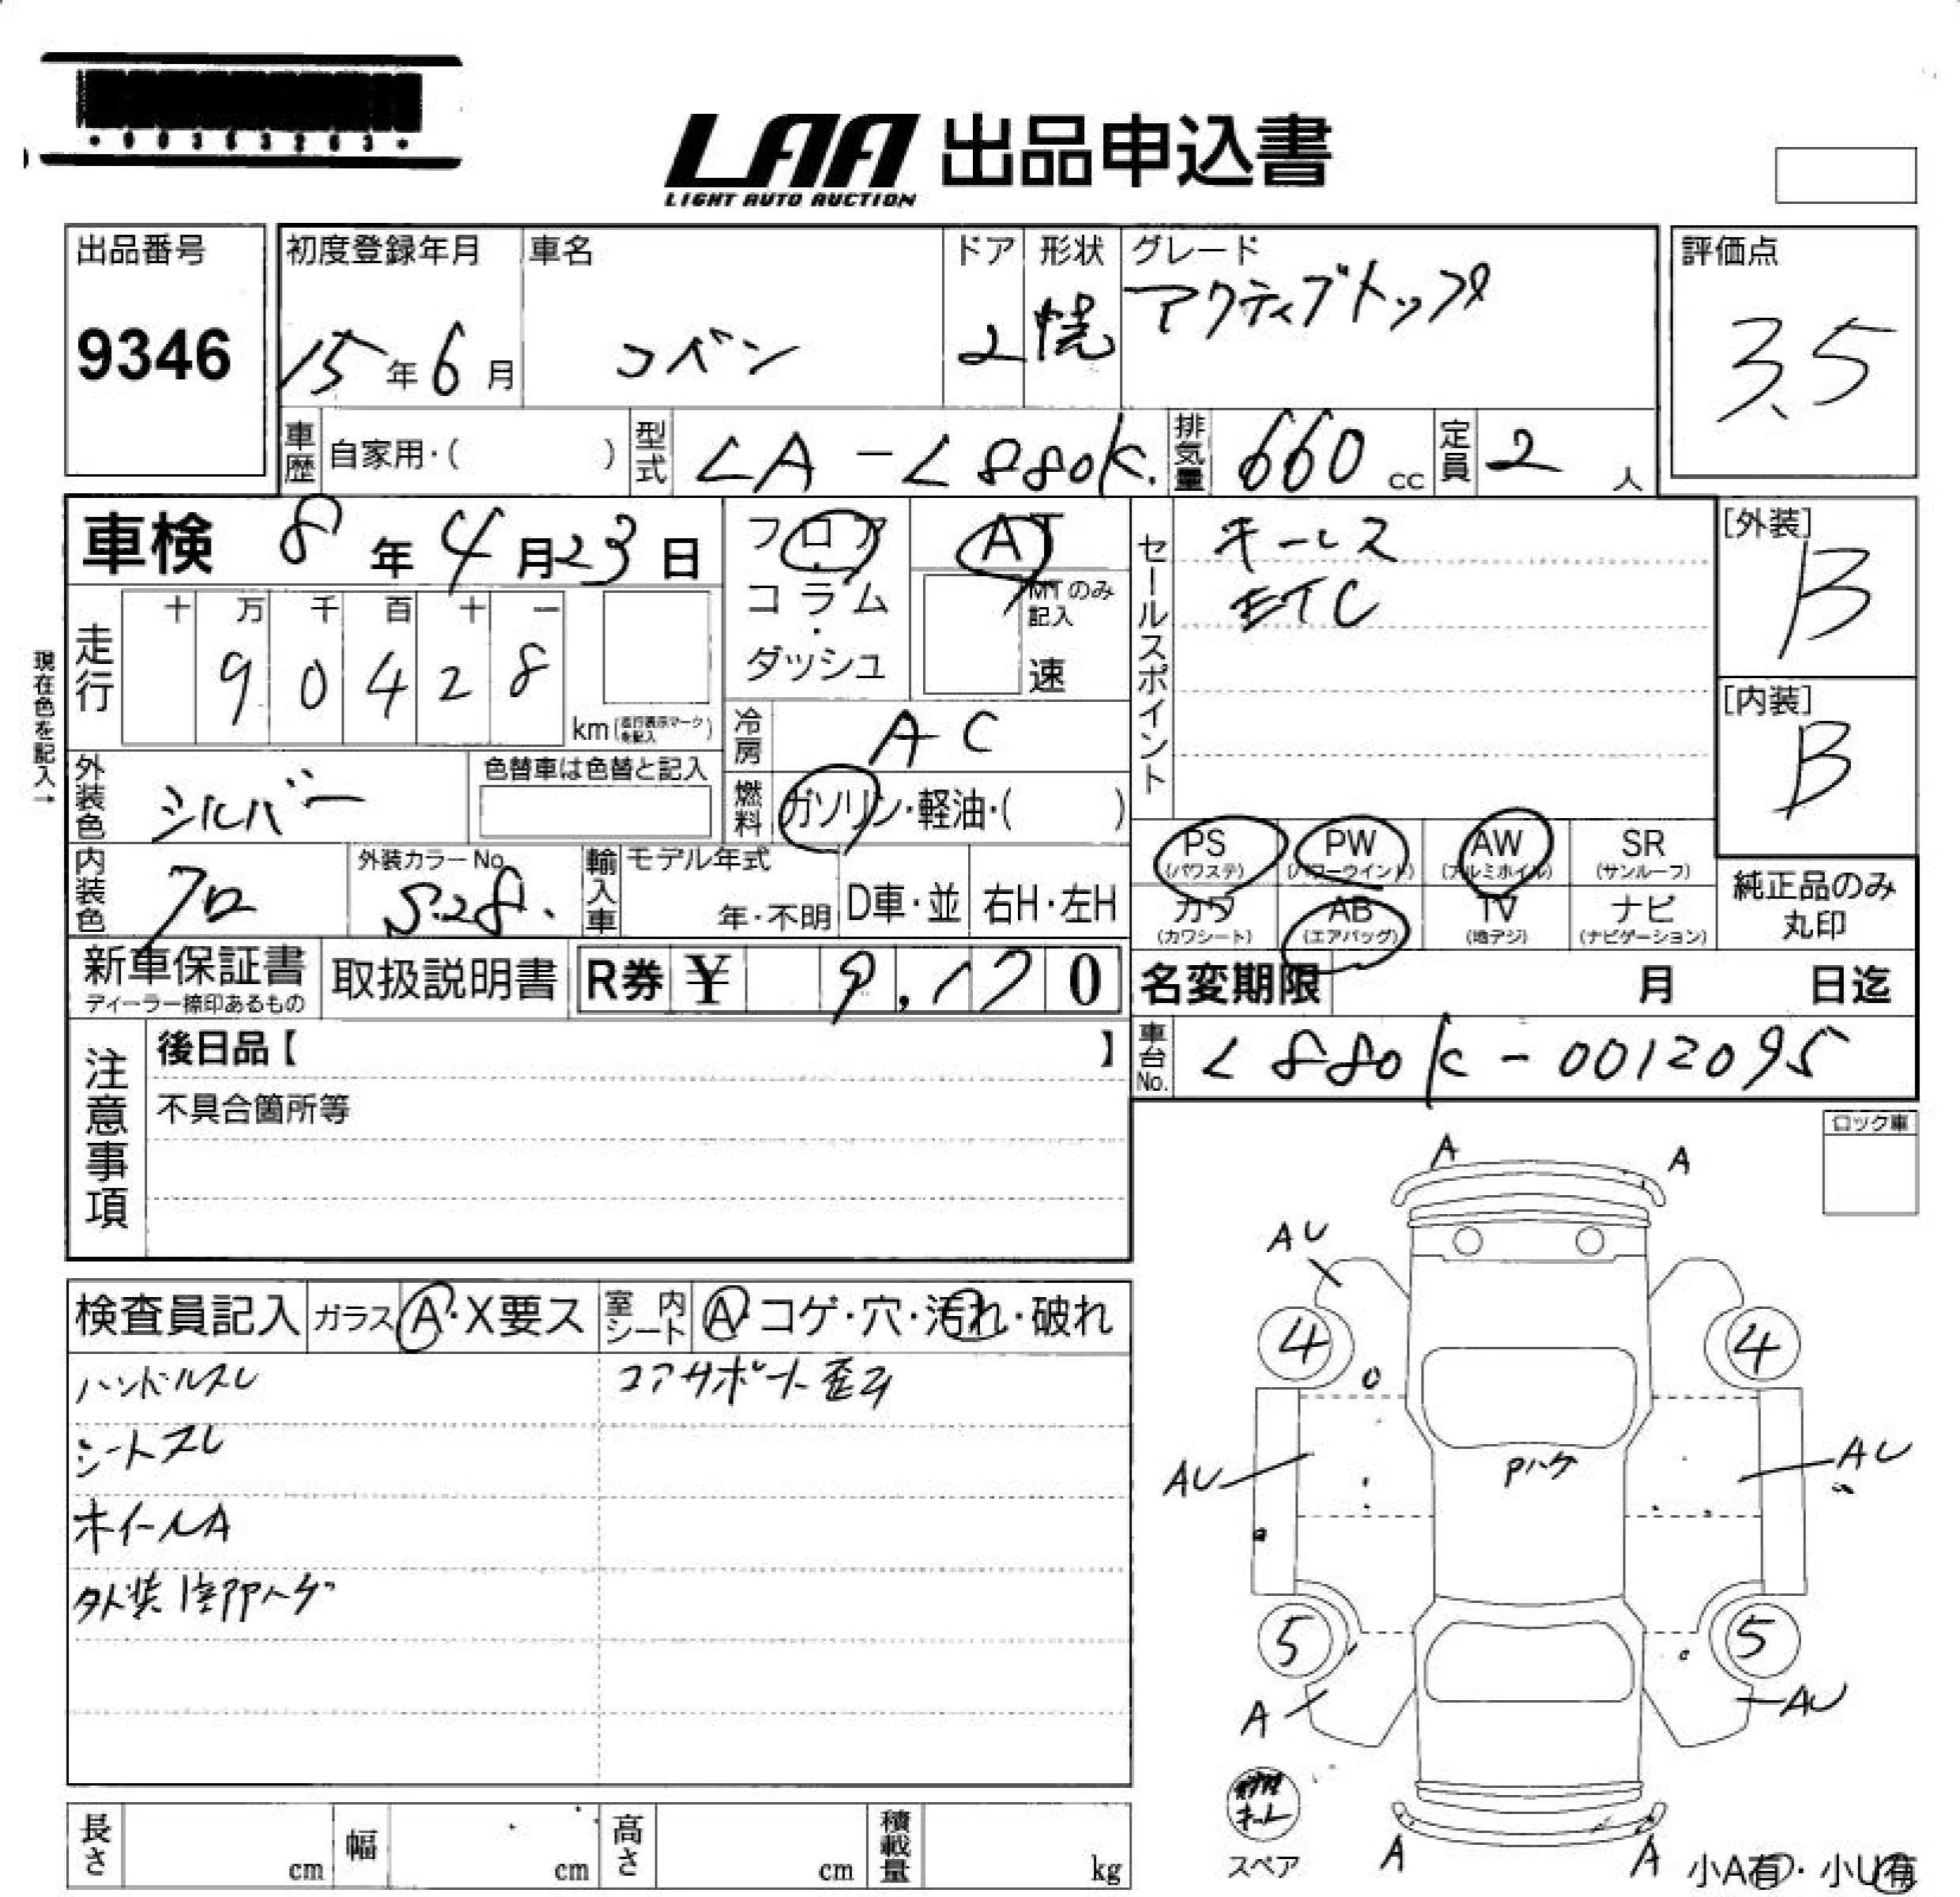 LAA 出品申込書
LIGHT AUTO AUCTION
出品番号
9346
初度登録年月
15年6月
車名
コペン
ドア
2
形状
幌
グレード
アクティブトップ
評価点
3.5
車歴
自家用・( )
型式
LA-L880K
排気量
660 cc
定員
2 人
車検 8年4月23日
フロア
・
コラム
・
ダッシュ
AT
MTのみ記入
速
セールスポイント
キーレス
ETC
[外装]
B
[内装]
B
現在色を記入→
走行
十 万 千 百 十 一
9 0 4 2 8
km(走行表示マークを記入)
冷房
AC
外装色
シルバー
色替車は色替と記入
燃料
ガソリン・軽油・( )
PS
(パワステ)
PW
(パワーウインド)
AW
(アルミホイル)
SR
(サンルーフ)
カワ
(カワシート)
AB
(エアバッグ)
TV
(地デジ)
ナビ
(ナビゲーション)
純正品のみ
丸印
内装色
クロ
外装カラーNo.
S28.
輸入車
モデル年式
年・不明
D車・並
右H・左H
新車保証書
ディーラー捺印あるもの
取扱説明書
R券 ¥ 9,170
名変期限 月 日迄
車台No.
L880K-0012095
注意事項
後日品【 】
不具合箇所等
ロック車
検査員記入
ガラス
A・X要ス
室内シート
A・コゲ・穴・汚れ・破れ
ハンドルスレ
コアサポート歪ミ
シートスレ
ホイールA
外装
ハゲ
A
A
AU
4
4
AU
Pハゲ
AU
5
5
A
AU
キット
スペア
A
A
小A有・小U有
長さ
cm
幅
cm
高さ
cm
積載量
kg